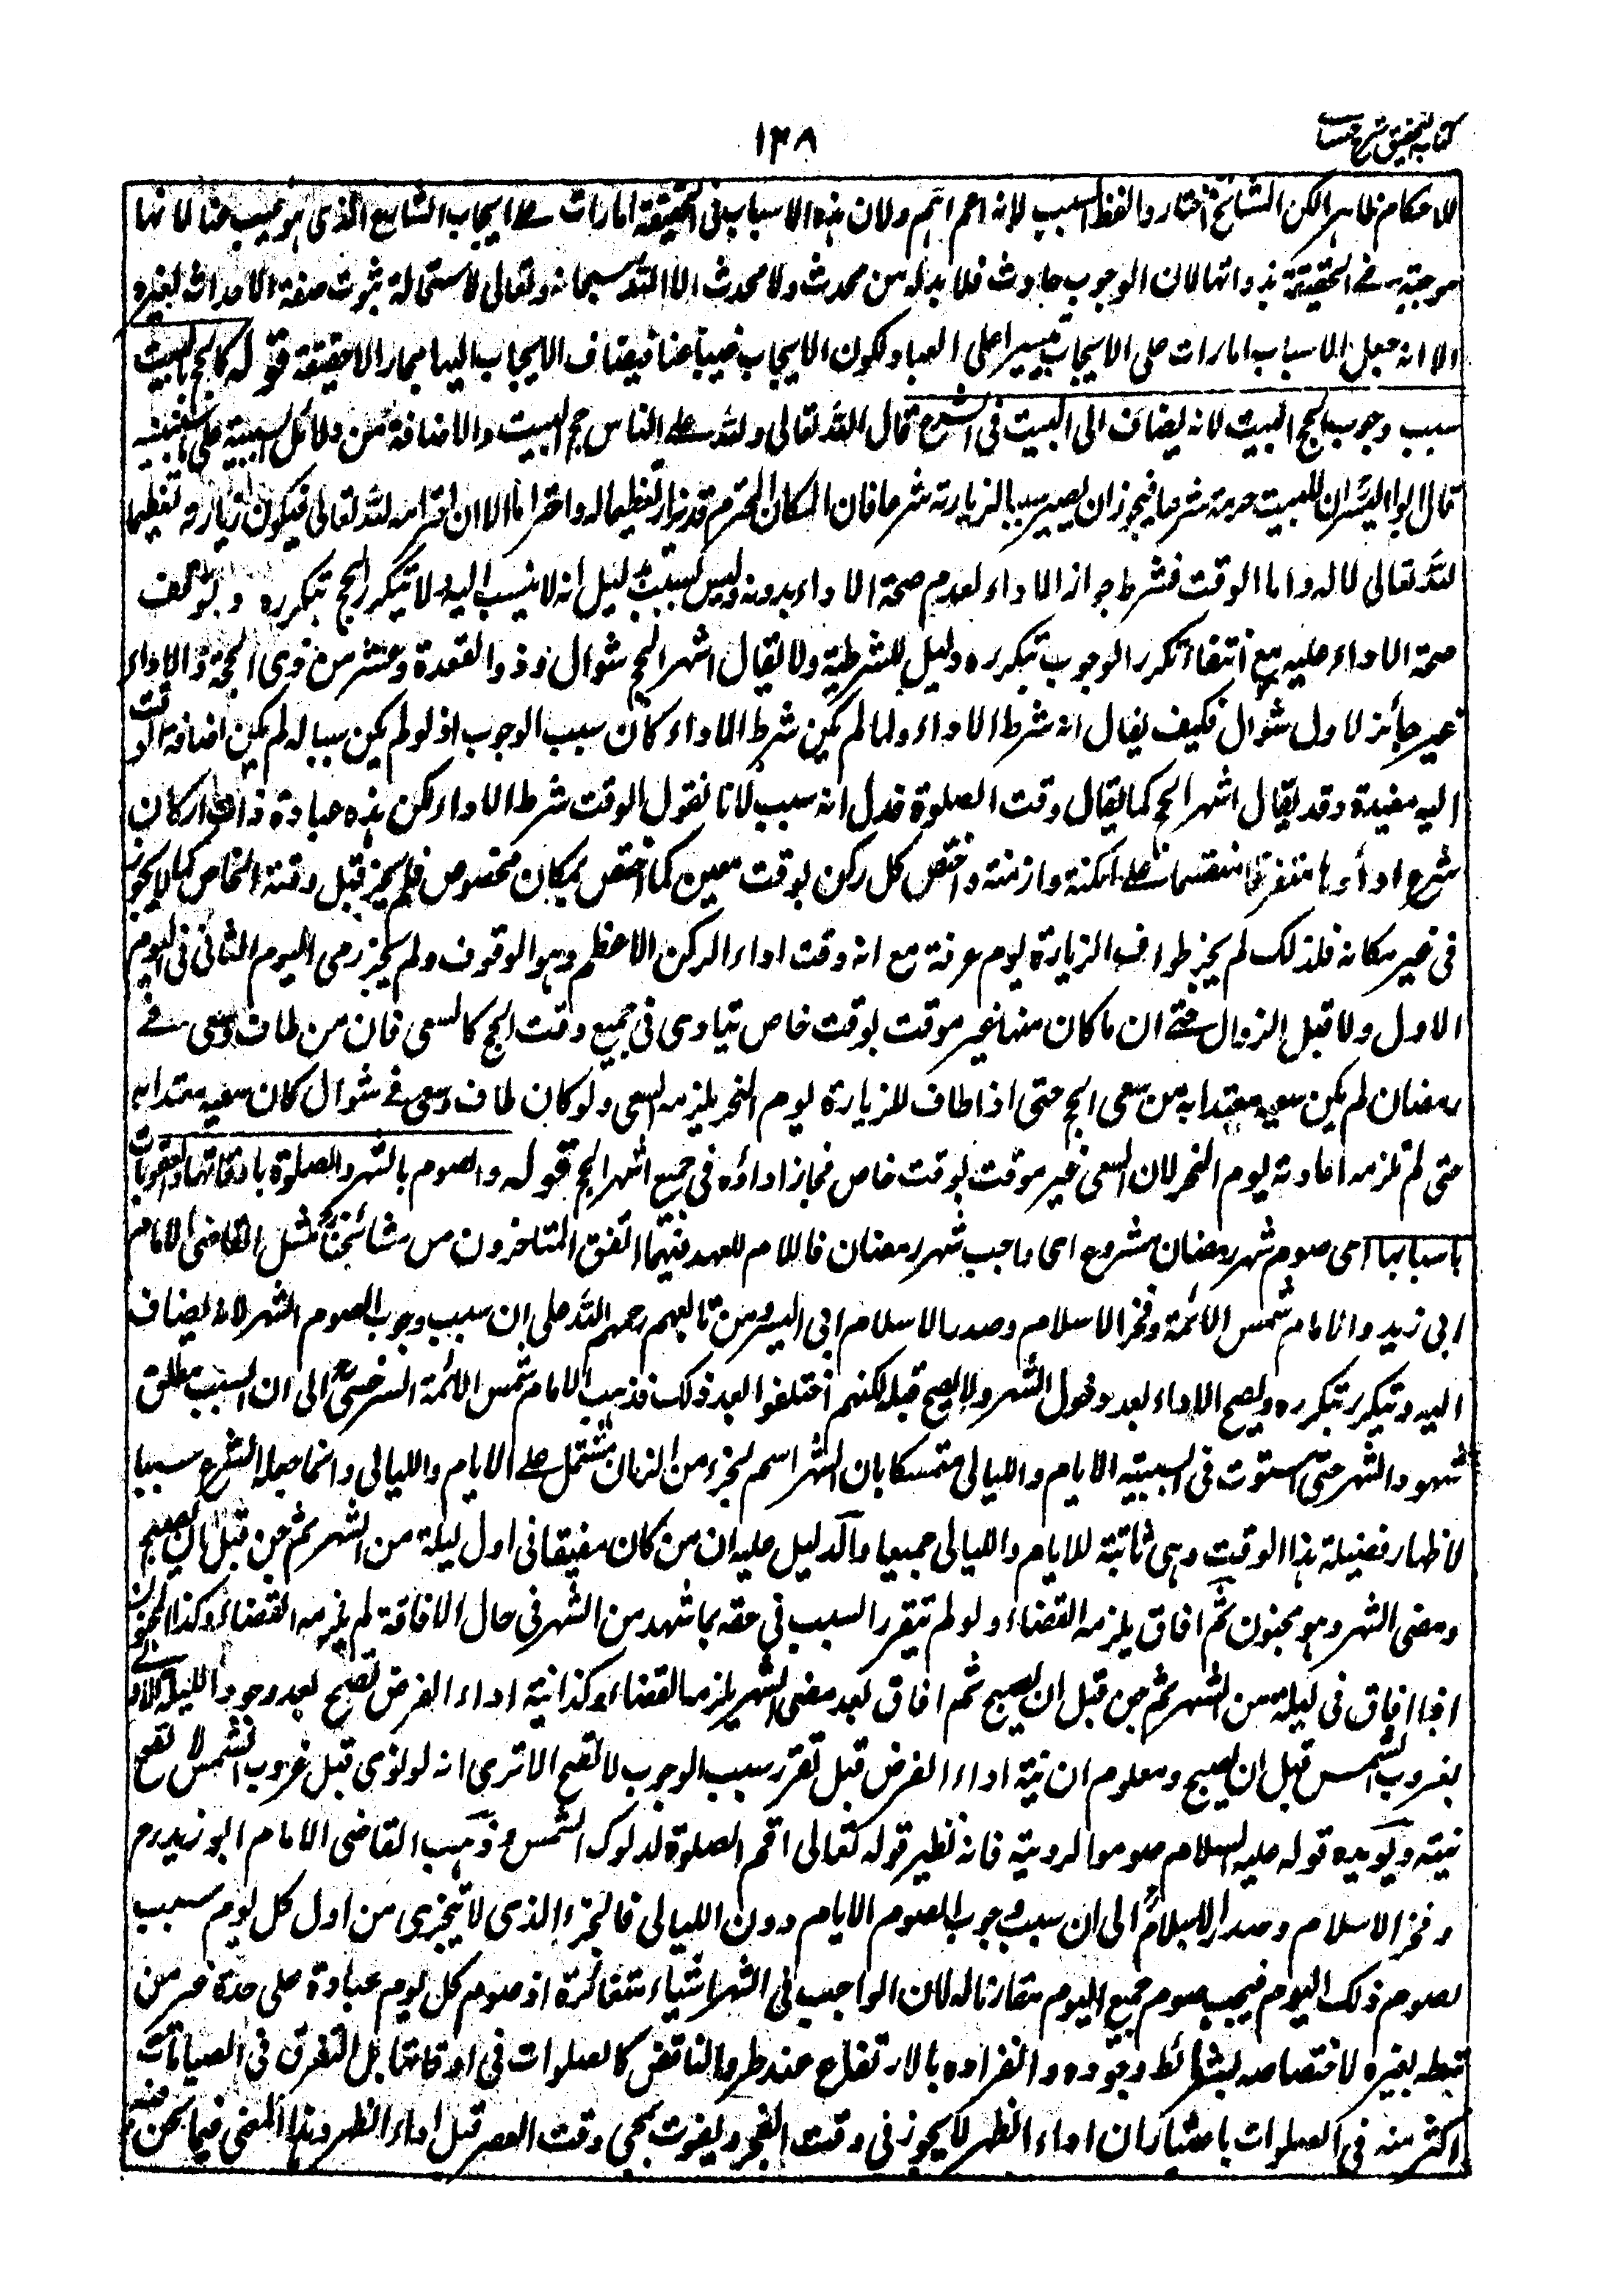 كتاب التحقيق شرح حسامى
١٣٨
للاحكام ظاهرا لكن المشائخ اختاروا لفظ السبب لانه اعم ولان هذه الاسباب فى الحقيقة امارات على ايجاب الشارع الذى هو غيب عنا لا انها
موجبة فى الحقيقة بذواتها لان الوجوب حادث فلا بد له من محدث ولا محدث الا الله سبحانه وتعالى لاستحالة ثبوت صفة الاحداث لغيره
الا انه جعل الاسباب امارات على الايجاب تيسيرا على العباد لكون الايجاب غيبا عنا فيضاف الايجاب اليها مجازا لا حقيقة قوله كالحج بالبيت
سبب وجوب الحج البيت لانه يضاف الى البيت فى الشرع قال الله تعالى ولله على الناس حج البيت والاضافة من دلائل السببية على ما نبينه
قال ابو اليسر ان للبيت حرمة شرعا فيجوز ان يصير سببا لزيارته شرعا فان المكان المحترم قد يزار تعظيما له واحتراما الا ان احترامه لله تعالى فيكون زيارته تعظيما
لله تعالى لا له واما الوقت فشرط جواز الاداء لعدم صحة الاداء بدونه وليس بسبب بدليل انه لا ينسب اليه ولا يتكرر الحج بتكرره وتوقف
صحة الاداء عليه مع انتفاء تكرر الوجوب بتكرره دليل الشرطية ولا يقال اشهر الحج شوال وذو القعدة وعشر من ذى الحجة والاداء
غير جائز لاول شوال فكيف يقال انه شرط الاداء ولما لم يكن شرط الاداء كان سبب الوجوب اذ لو لم يكن سببا له لم يكن اضافة الوقت
اليه مفيدة وقد يقال اشهر الحج كما يقال وقت الصلوة فدل انه سبب لانا نقول الوقت شرط الاداء لكن هذه عبادة ذات اركان
شرع اداؤها متفرقا منقسما على امكنة وازمنة واختص كل ركن بوقت معين كما اختص بمكان مخصوص فلم يجز قبل وقته الخاص كما لا يجوز
فى غير مكانه فلذلك لم يجز طواف الزيارة يوم عرفة مع انه وقت اداء الركن الاعظم وهو الوقوف ولم يجز رمى اليوم الثانى فى اليوم
الاول ولا قبل الزوال حتى ان ما كان منها غير موقت بوقت خاص يتادى فى جميع وقت الحج كالسعى فان من طاف وسعى فى
رمضان لم يكن سعيه معتدا به من سعى الحج حتى اذا طاف للزيارة يوم النحر يلزمه السعى ولو كان طاف وسعى فى شوال كان سعيه معتدا به
حتى لم تلزمه اعادته يوم النحر لان السعى غير موقت بوقت خاص فجاز اداؤه فى جميع اشهر الحج قوله والصوم بالشهر والصلوة باوقاتها والعقوبات
باسبابها اى صوم شهر رمضان مشروع اى واجب شهر رمضان فاللام للعهد فيهما اتفق المتاخرون من مشائخنا مثل القاضى الامام
ابى زيد والامام شمس الائمة وفخر الاسلام وصدر الاسلام ابى اليسر ومن تابعهم رحمهم الله على ان سبب وجوب الصوم الشهر لانه يضاف
اليه ويتكرر بتكرره ويصح الاداء بعد دخول الشهر ولا يصح قبله لكنهم اختلفوا بعد ذلك فذهب الامام شمس الائمة السرخسى الى ان السبب مطلق
شهود الشهر حتى استوت فى السببية الايام والليالى متمسكا بان الشهر اسم لجزء من الزمان مشتمل على الايام والليالى وانما جعله الشرع سببا
لاظهار فضيلة هذا الوقت وهى ثابتة للايام والليالى جميعا والدليل عليه ان من كان مفيقا فى اول ليلة من الشهر ثم جن قبل ان يصبح
ومضى الشهر وهو مجنون ثم افاق يلزمه القضاء ولو لم يتقرر السبب فى حقه بما شهد من الشهر فى حال الافاقة لم يلزمه القضاء وكذا المجنون
اذا افاق فى ليلة من الشهر ثم جن قبل ان يصبح ثم افاق بعد مضى الشهر يلزمه القضاء وكذا نية اداء الفرض تصح بعد وجود الليلة الاولى
بغروب الشمس قبل ان يصبح ومعلوم ان نية اداء الفرض قبل تقرر سبب الوجوب لا تصح الا ترى انه لو نوى قبل غروب الشمس لا تصح
نيته ويؤيده قوله عليه السلام صوموا لرويته فانه نظير قوله تعالى اقم الصلوة لدلوك الشمس وذهب القاضى الامام ابو زيد رح
وفخر الاسلام وصدر الاسلام الى ان سبب وجوب الصوم الايام دون الليالى فالجزء الذى لا يتجزى من اول كل يوم سبب
لصوم ذلك اليوم فيجب صوم جميع اليوم مقارنا له لان الواجب فى الشهر اشياء متغائرة اذ صوم كل يوم عبادة على حدة غير من
تبطه بغيره لاختصاصه بشرائط وجوده وانفراده بالارتفاع عند طروء الناقض كالصلوات فى اوقاتها بل التفرق فى الصيامات
اكثر منه فى الصلوات باعتبار ان اداء الظهر لا يجوز فى وقت الفجر ويفوت بمجى وقت العصر قبل اداء الظهر وهذا المعنى فيما نحن فيه